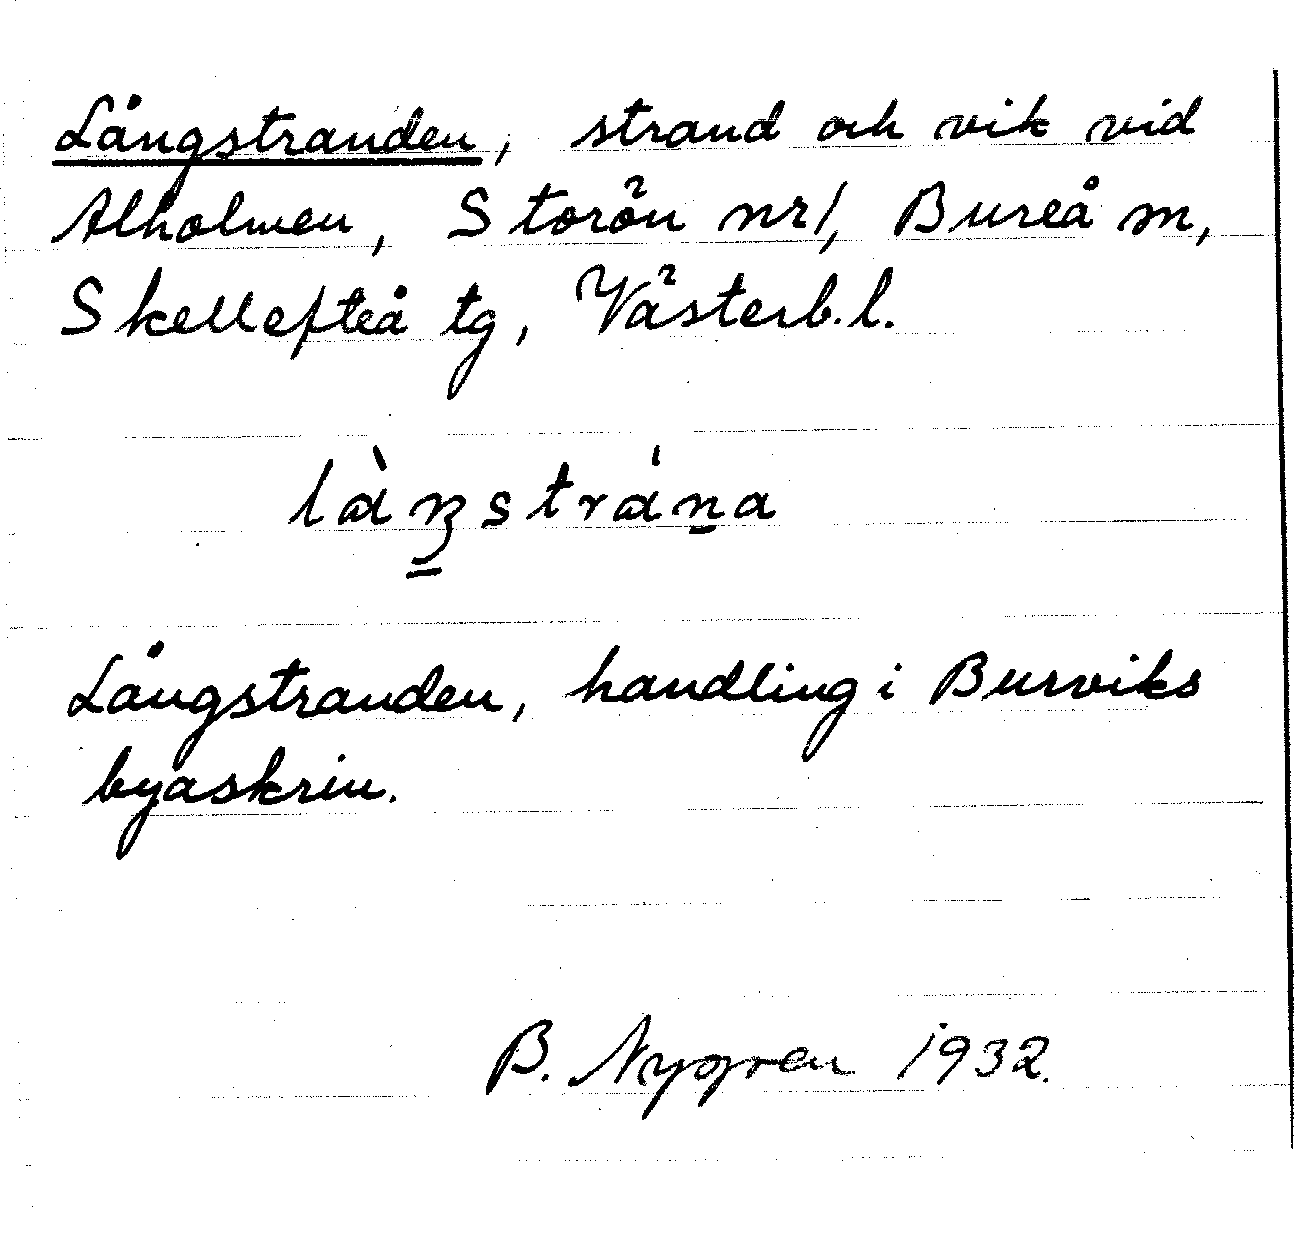 Långstranden, strand och vik vid
Alholmen, Storön nr 1, Bureå sn,
Skellefteå tg, Västerb. l.
làŋstráṉa
Långstranden, handling i Burviks
byaskrin.
B. Nygren 1932.